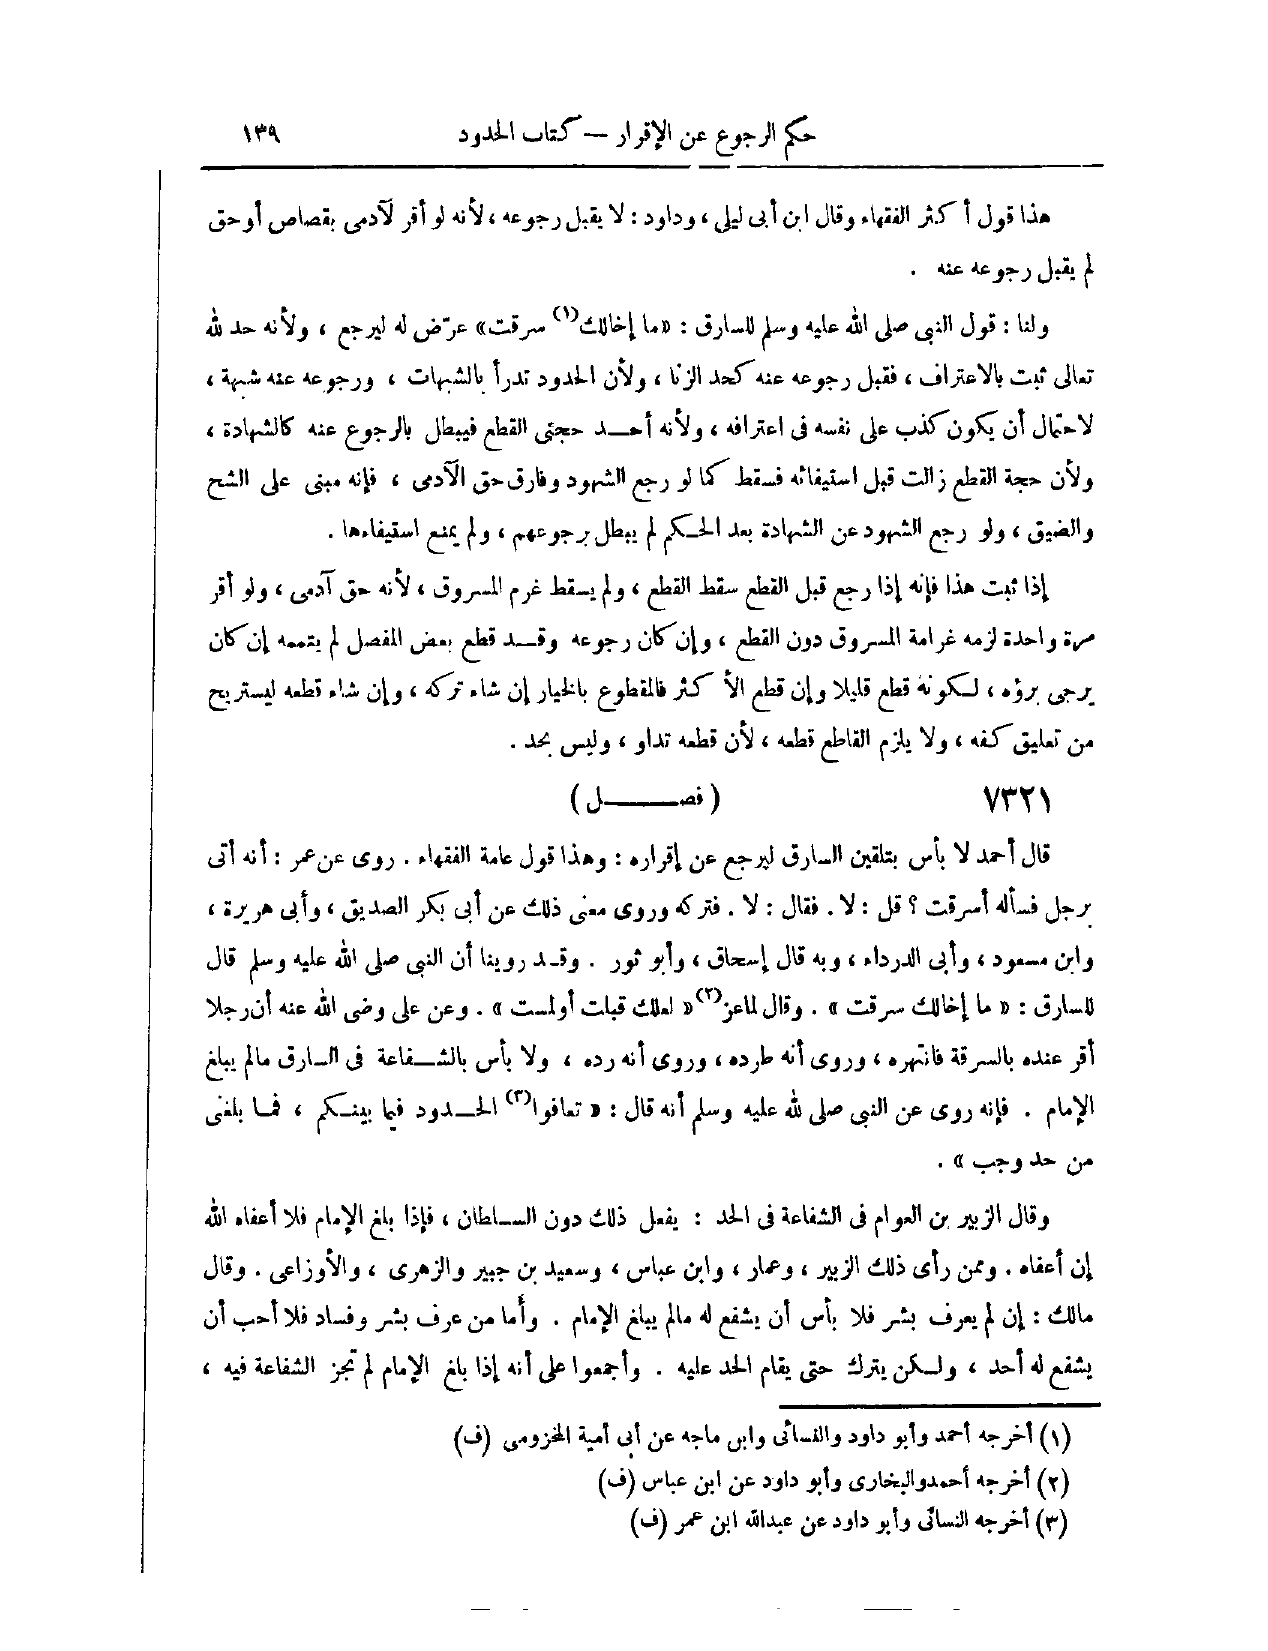 حكم الرجوع عن الإقرار — كتاب الحدود ١٣٩
هذا قول أكثر الفقهاء وقال ابن أبى ليلى ، وداود : لا يقبل رجوعه ، لأنه لو أقر لآدمى بقصاص أو حق
لم يقبل رجوعه عنه .
ولنا : قول النبى صلى الله عليه وسلم للسارق : «ما إخالك(١) سرقت» عرّض له ليرجع ، ولأنه حد لله
تعالى ثبت بالاعتراف ، فقبل رجوعه عنه كحد الزنا ، ولأن الحدود تدرأ بالشبهات ، ورجوعه عنه شبهة ،
لاحتمال أن يكون كذب على نفسه فى اعترافه ، ولأنه أحد حجتى القطع فيبطل بالرجوع عنه كالشهادة ،
ولأن حجة القطع زالت قبل استيفائه فسقط كما لو رجع الشهود وفارق حق الآدمى ، فإنه مبنى على الشح
والضيق ، ولو رجع الشهود عن الشهادة بعد الحكم لم يبطل برجوعهم ، ولم يمنع استيفاءها .
إذا ثبت هذا فإنه إذا رجع قبل القطع سقط القطع ، ولم يسقط غرم المسروق ، لأنه حق آدمى ، ولو أقر
مرة واحدة لزمه غرامة المسروق دون القطع ، وإن كان رجوعه وقد قطع بعض المفصل لم يتممه إن كان
يرجى برؤه ، لكونه قطع قليلا وإن قطع الأكثر فالمقطوع بالخيار إن شاء تركه ، وإن شاء قطعه ليستريح
من تعليق كفه ، ولا يلزم القاطع قطعه ، لأن قطعه تداو ، وليس بحد .
٧٣٢١ ( فصل )
قال أحمد لا بأس بتلقين السارق ليرجع عن إقراره : وهذا قول عامة الفقهاء . روى عن عمر : أنه أتى
برجل فسأله أسرقت ؟ قل : لا . فقال : لا . فتركه وروى معنى ذلك عن أبى بكر الصديق ، وأبى هريرة ،
وابن مسعود ، وأبى الدرداء ، وبه قال إسحاق ، وأبو ثور . وقد روينا أن النبى صلى الله عليه وسلم قال
للسارق : « ما إخالك سرقت » . وقال لماعز(٢) « لعلك قبلت أو لمست » . وعن على وضى الله عنه أن رجلا
أقر عنده بالسرقة فانتهره ، وروى أنه طرده ، وروى أنه رده ، ولا بأس بالشفاعة فى السارق مالم يبلغ
الإمام . فإنه روى عن النبى صلى لله عليه وسلم أنه قال : « تعافوا(٣) الحدود فيما بينكم ، فما بلغنى
من حد وجب » .
وقال الزبير بن العوام فى الشفاعة فى الحد : يفعل ذلك دون السلطان ، فإذا بلغ الإمام فلا أعفاه الله
إن أعفاه . وممن رأى ذلك الزبير ، وعمار ، وابن عباس ، وسعيد بن جبير والزهرى ، والأوزاعى . وقال
مالك : إن لم يعرف بشر فلا بأس أن يشفع له مالم يبلغ الإمام . وأما من عرف بشر وفساد فلا أحب أن
يشفع له أحد ، ولكن يترك حتى يقام الحد عليه . وأجمعوا على أنه إذا بلغ الإمام لم تجز الشفاعة فيه ،
(١) أخرجه أحمد وأبو داود والنسائى وابن ماجه عن أبى أمية المخزومى (ف)
(٢) أخرجه أحمد والبخارى وأبو داود عن ابن عباس (ف)
(٣) أخرجه النسائى وأبو داود عن عبدالله ابن عمر (ف)